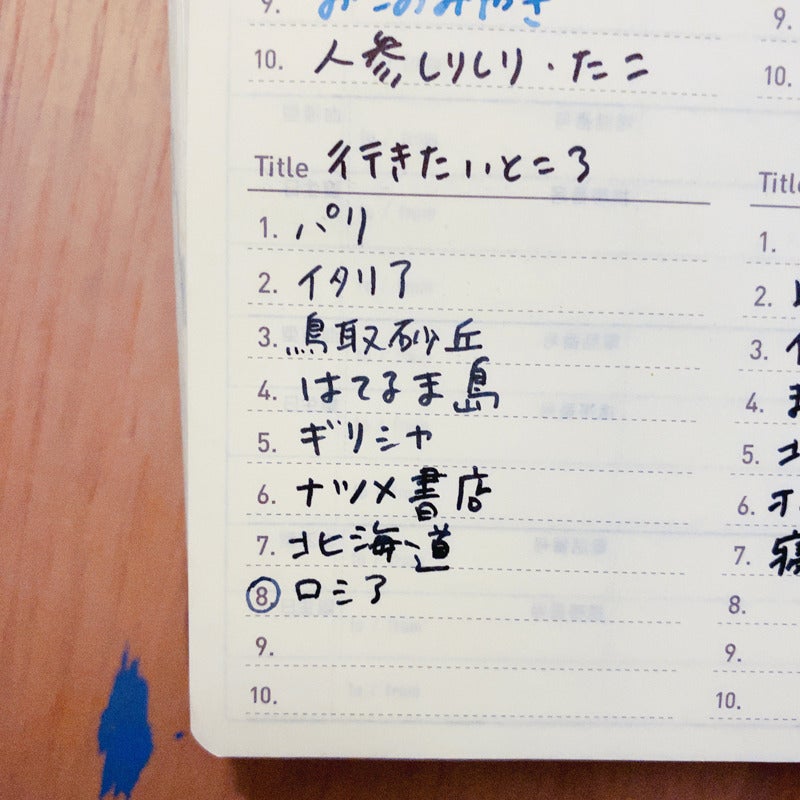 9.
10. 人参しりしり・たこ
Title 行きたいところ
1. パリ
2. イタリア
3. 鳥取砂丘
4. はてるま島
5. ギリシャ
6. ナツメ書店
7. 北海道
8. ロシア
9.
10.
9.
10.
Title
1.
2.
3.
4.
5.
6.
7.
8.
9.
10.